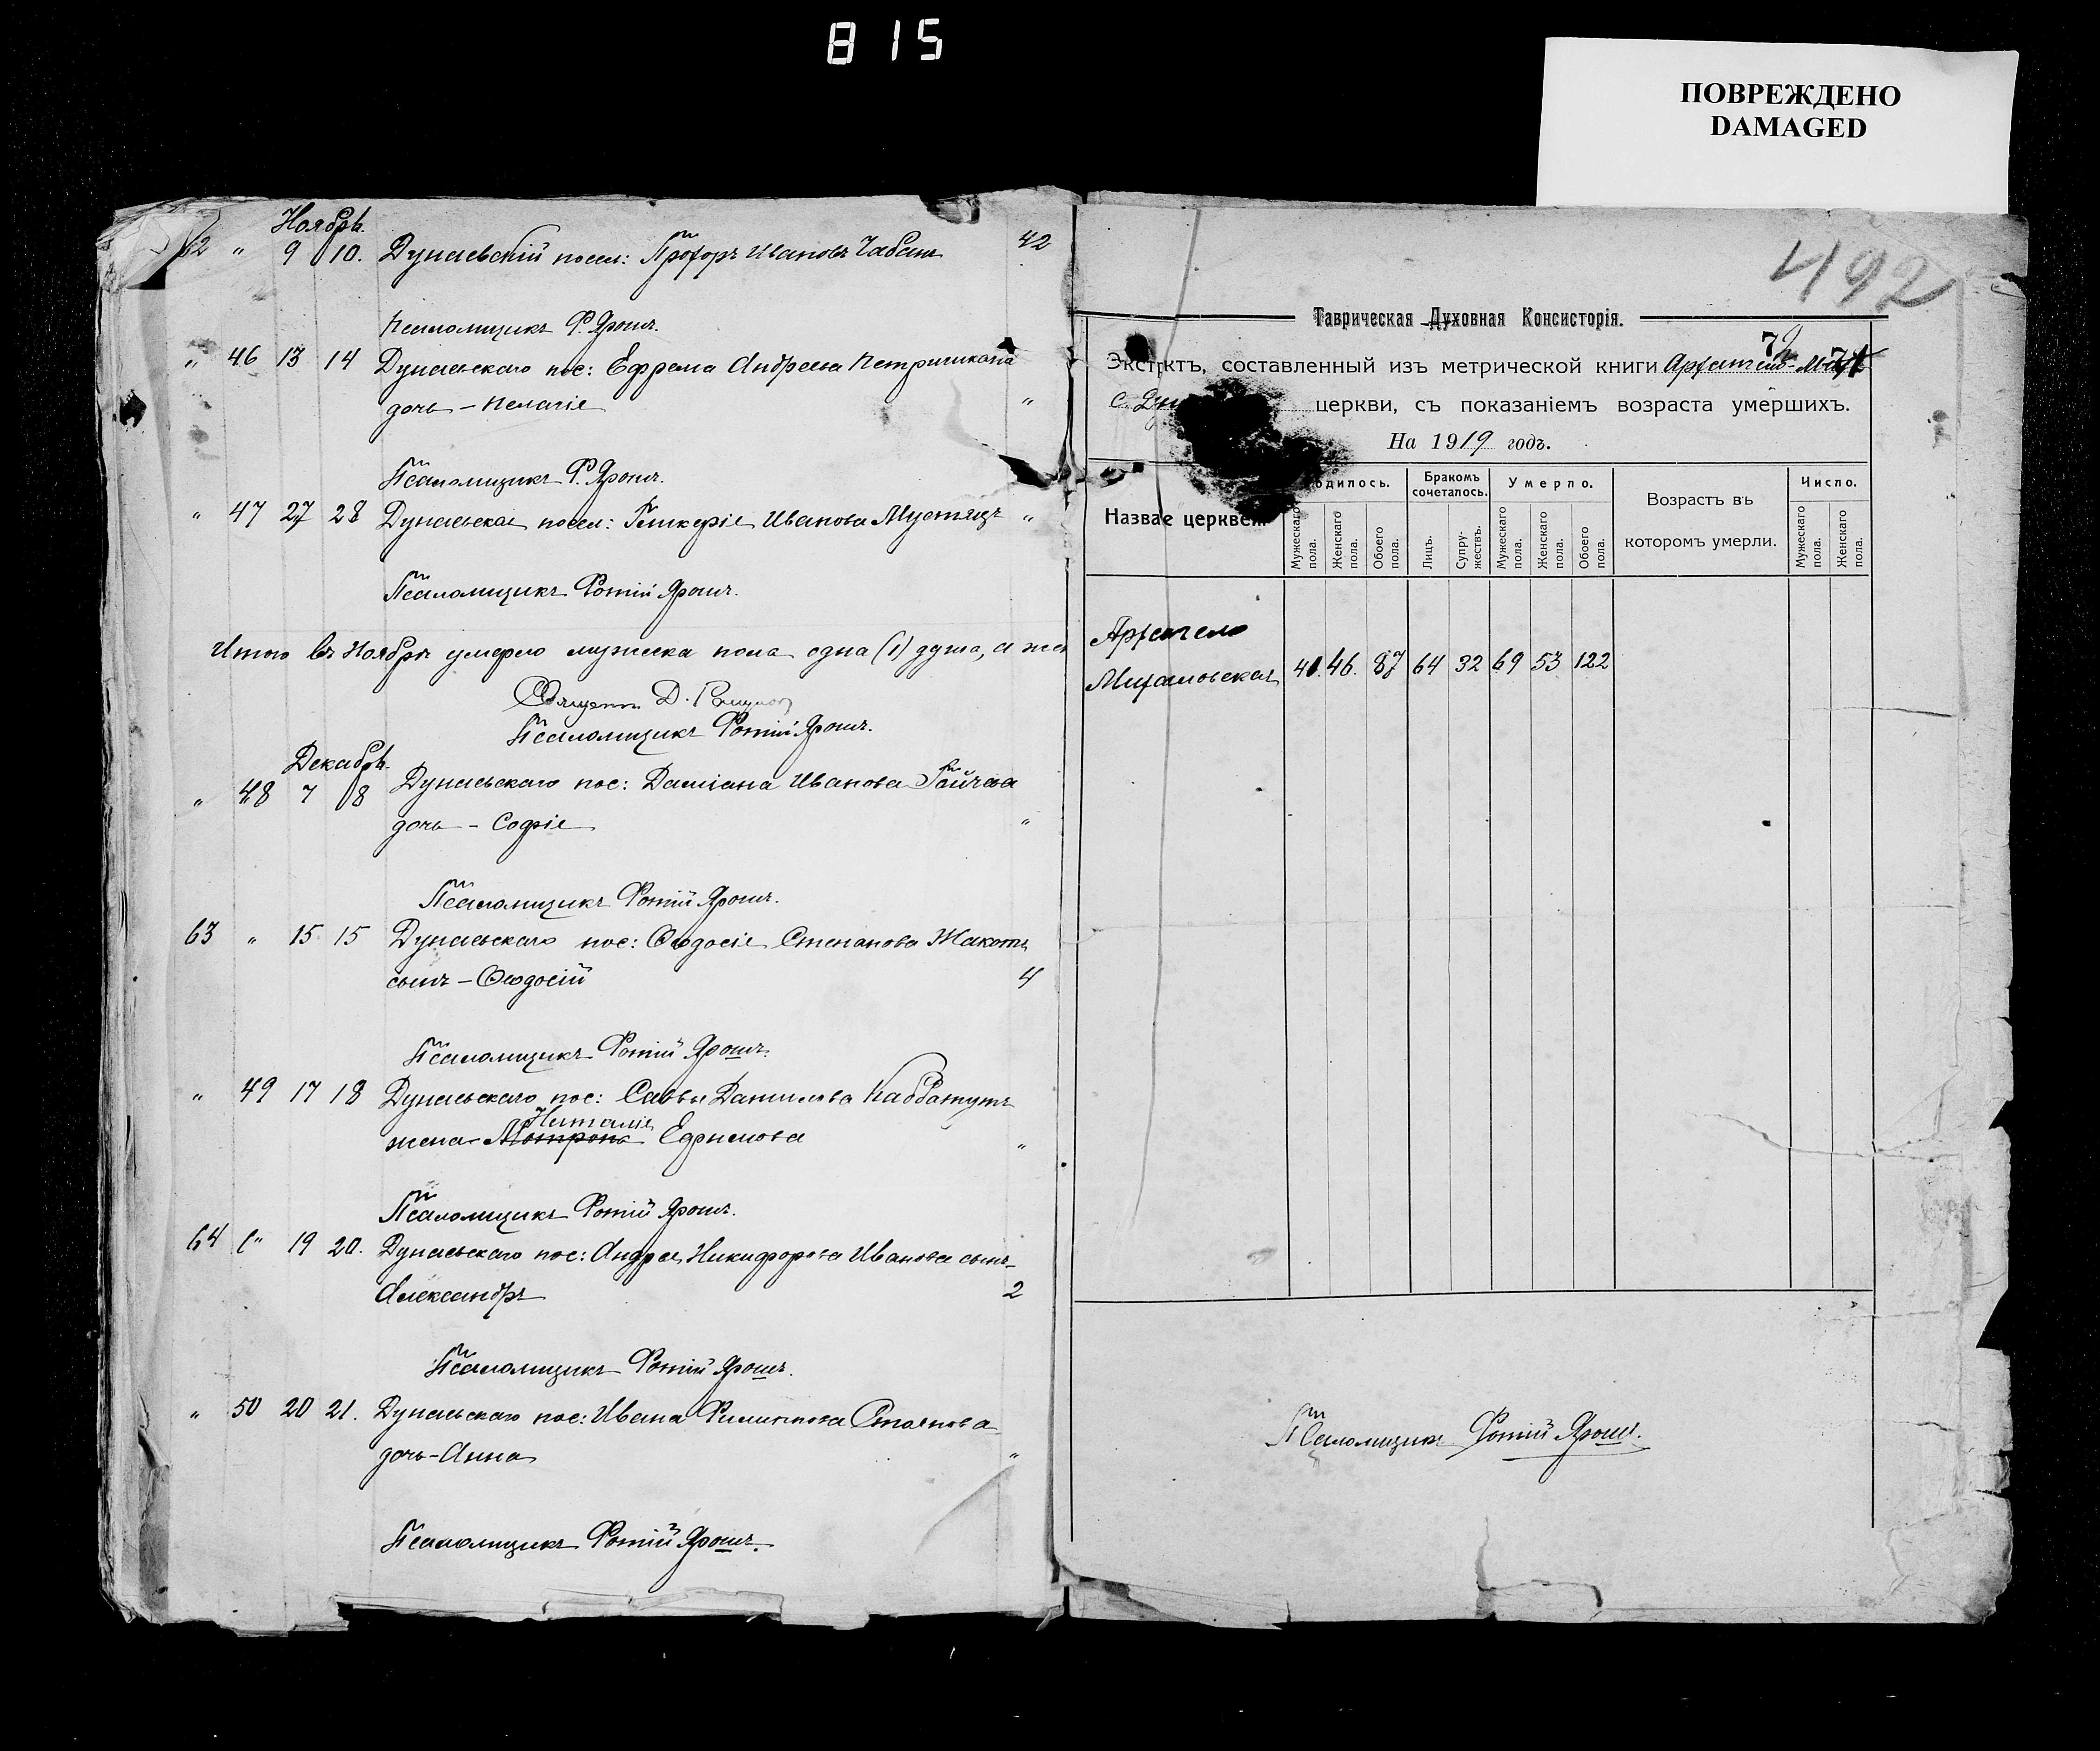 815
ПОВРЕЖДЕНО
DAMAGED
Ноябрь.
62 " 9 10. Дунаевскій посел: Прохоръ Ивановъ Чабанъ 42
Псаломщикъ Ф. Ярошъ.
" 46 13 14 Дунаевскаго пос: Ефрема Андреева
дочь – Пелагія "
Псаломщикъ Ф. Ярошъ.
" 47 27 28 Дунаевская посел: Гликерія Иванова "
Псаломщикъ Фотій Ярошъ.
Итого въ Ноябрѣ умерло мужеска пола одна (1) душа, а
Священ. Д.
Псаломщикъ Фотій Ярошъ.
Декабрь.
" 48 7 8 Дунаевскаго пос: Даміана Иванова
дочь – Софія "
Псаломщикъ Фотій Ярошъ.
63 " 15 15 Дунаевскаго пос: Ѳеодосія Степанова
сынъ – Ѳеодосій 4
Псаломщикъ Фотій Ярошъ.
" 49 17 18 Дунаевскаго пос: Саввы Данилова
Наталія
жена – Мотрона Ефимова "
Псаломщикъ Фотій Ярошъ.
64 " 19 20. Дунаевскаго пос: Андрея Никифорова Иванова сынъ –
Александръ 2
Псаломщикъ Фотій Ярошъ.
" 50 20 21. Дунаевскаго пос: Ивана Филиппова Стоянова
дочь – Анна "
Псаломщикъ Фотій Ярошъ.
492
Таврическая Духовная Консисторія.
Экст ктъ, составленный изъ метрической книги Архангело-
с. Дун церкви, съ показаніемъ возраста умершихъ.
На 1919 годъ.
Назва е церквей. одилось. Бракомъ сочеталось. Умерло. Возрастъ въ которомъ умерли. Число.
Мужескаго пола. Женскаго пола. Обоего пола. Лицъ. Супру-жествъ. Мужескаго пола. Женскаго пола. Обоего пола. Мужескаго пола. Женскаго пола.
Архангело
Михайловская 41. 46. 87 64 32 69 53 122
Псаломщикъ Фотій Ярошъ.